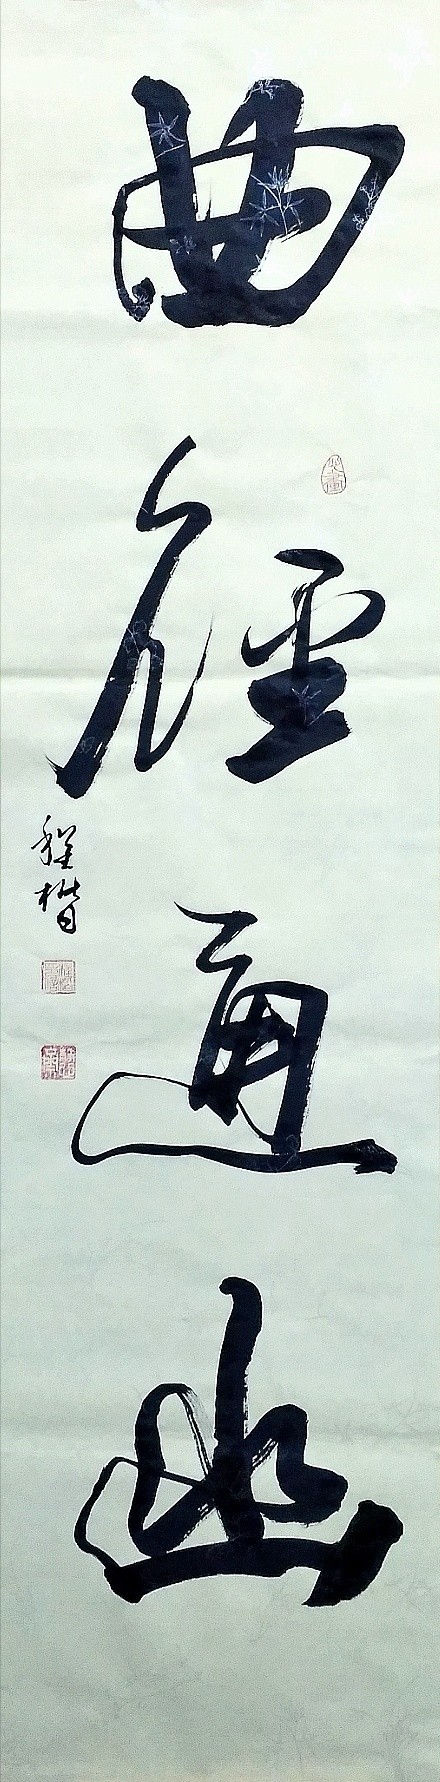 曲径通幽
程楷